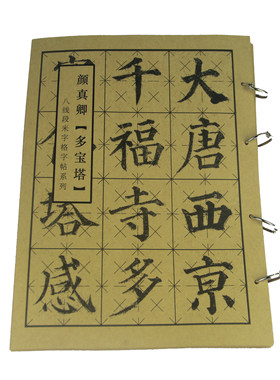 大唐西京
千福寺多
塔感
颜真卿【多宝塔】
八线段米字格字帖系列